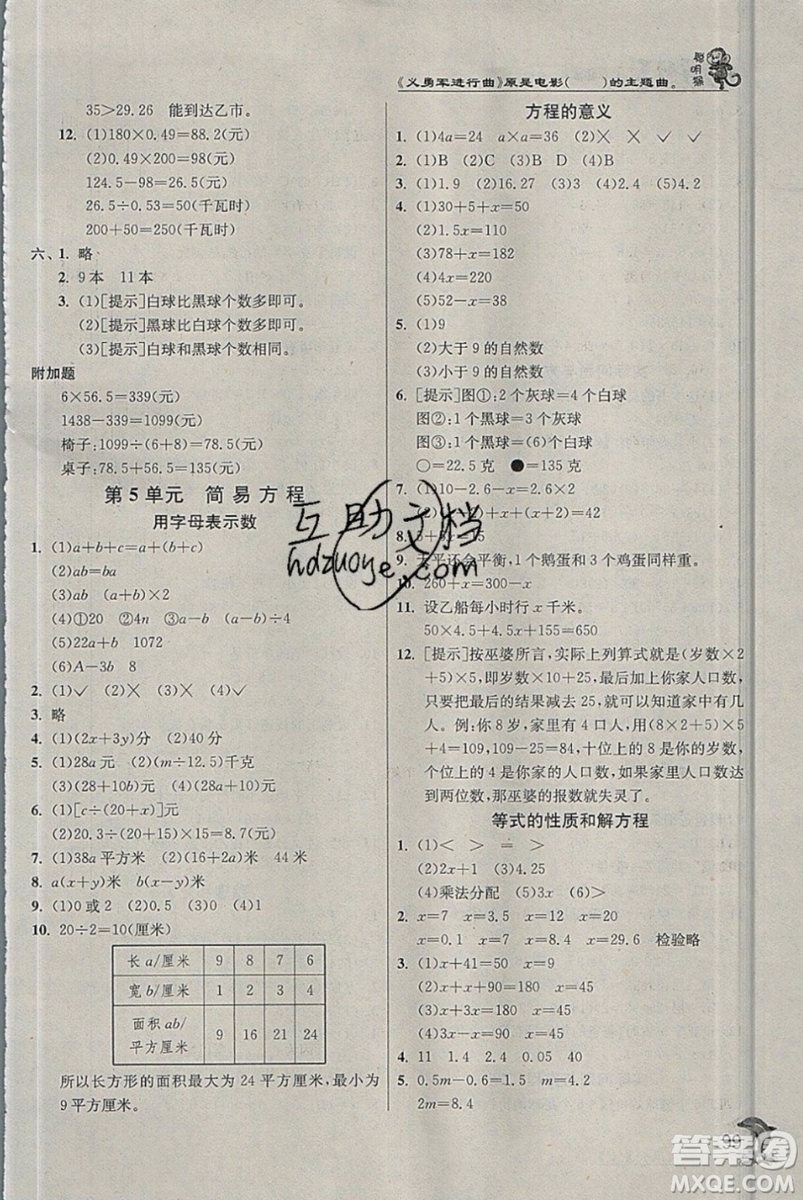 聪明猴
《义勇军进行曲》原是电影(　　)的主题曲。
35>29.26　能到达乙市。
12. (1)180×0.49=88.2(元)
(2)0.49×200=98(元)
124.5−98=26.5(元)
26.5÷0.53=50(千瓦时)
200+50=250(千瓦时)
六、1. 略
2. 9本　11本
3. (1)[提示]白球比黑球个数多即可。
(2)[提示]黑球比白球个数多即可。
(3)[提示]白球和黑球个数相同。
附加题
6×56.5=339(元)
1438−339=1099(元)
椅子:1099÷(6+8)=78.5(元)
桌子:78.5+56.5=135(元)
第5单元　简易方程
用字母表示数
1. (1)a+b+c=a+(b+c)
(2)ab=ba
(3)ab　(a+b)×2
(4)①20　②4n　③a−b　④a
(5)22a+b　1072
(6)A−3b　8
2. (1)✓　(2)×　(3)×　(4)✓
3. 略
4. (1)(2x+3y)分　(2)40分
5. (1)(28a+20b)千克
(2)(28+10b)千克
6. (1)[c÷(20+x)]元
(2)20.3÷(20+15)=8.7(元)
7. (1)38a平方米　(2)(16+2a)米　44米
8. a(x+y)　(x−y)b
9. (1)0或2　(2)0　(3)0　(4)1
10. 20÷2=10(厘米)
长a/厘米　9　8　7　6
宽b/厘米　1　2　3　4
面积ab/平方厘米　9　16　21　24
所以长方形的面积最大为24平方厘米,最小为
9平方厘米。
方程的意义
1. (1)4a=24　a×a=36　(2)×　×　✓
2. (1)B　(2)C　(3)B　D　(4)D
3. (1)1.9　(2)x　(3)6　(4)2.4　(5)4.2
4. (1)30+5+x=50
(2)1.5x=110
(3)78+x=182
(4)4x=220
(5)52−x=18
5. (1)9
(2)大于9的自然数
(3)小于9的自然数
6. [提示]图①:2个灰球=4个白球
图②:1个黑球=3个灰球
图③:1个黑球=(6)个白球
○=22.5克　●=135克
7. (1)2x+1.6=10
8.
9. 天平还会平衡,1个鹅蛋和3个鸡蛋同样重。
10. 260+x=300−x
11. 设乙船每小时行x千米。
50×4.5+4.5x+155=650
12. [提示]按巫婆所言,实际上列算式就是(岁数×2
+5)×5,即岁数×10+25,最后加你家人口数,
只要把最后的结果减去25,就可以知道家中有几
人。例:你8岁,家里有4口人,用(8×2+5)×5
+4=109,109−25=84,十位上的8是你的岁数,
个位上的4是你家的人口数,如果你的岁数大
到两位数,那巫婆的报数就失灵了。
等式的性质和解方程
1. (1)<　>　=　>
(2)2x+1　(3)4.25
(4)乘法分配　(5)3x　(6)>
2. x=7　x=3.5　x=10　x=120
x=40　x=48　x=29.6　检验略
3. (1)x+41=90　x=49
(2)x+x+90=180　x=45
(3)x+3x=180　x=45
(4)3x−x=90　x=45
4. 11　1.4　0.01　0.05　0.02
5. 6m−2m=8.4−4m+4m
2m=8.4
99
互助文档
hdzuoye.com
答案圈
MXQE.COM